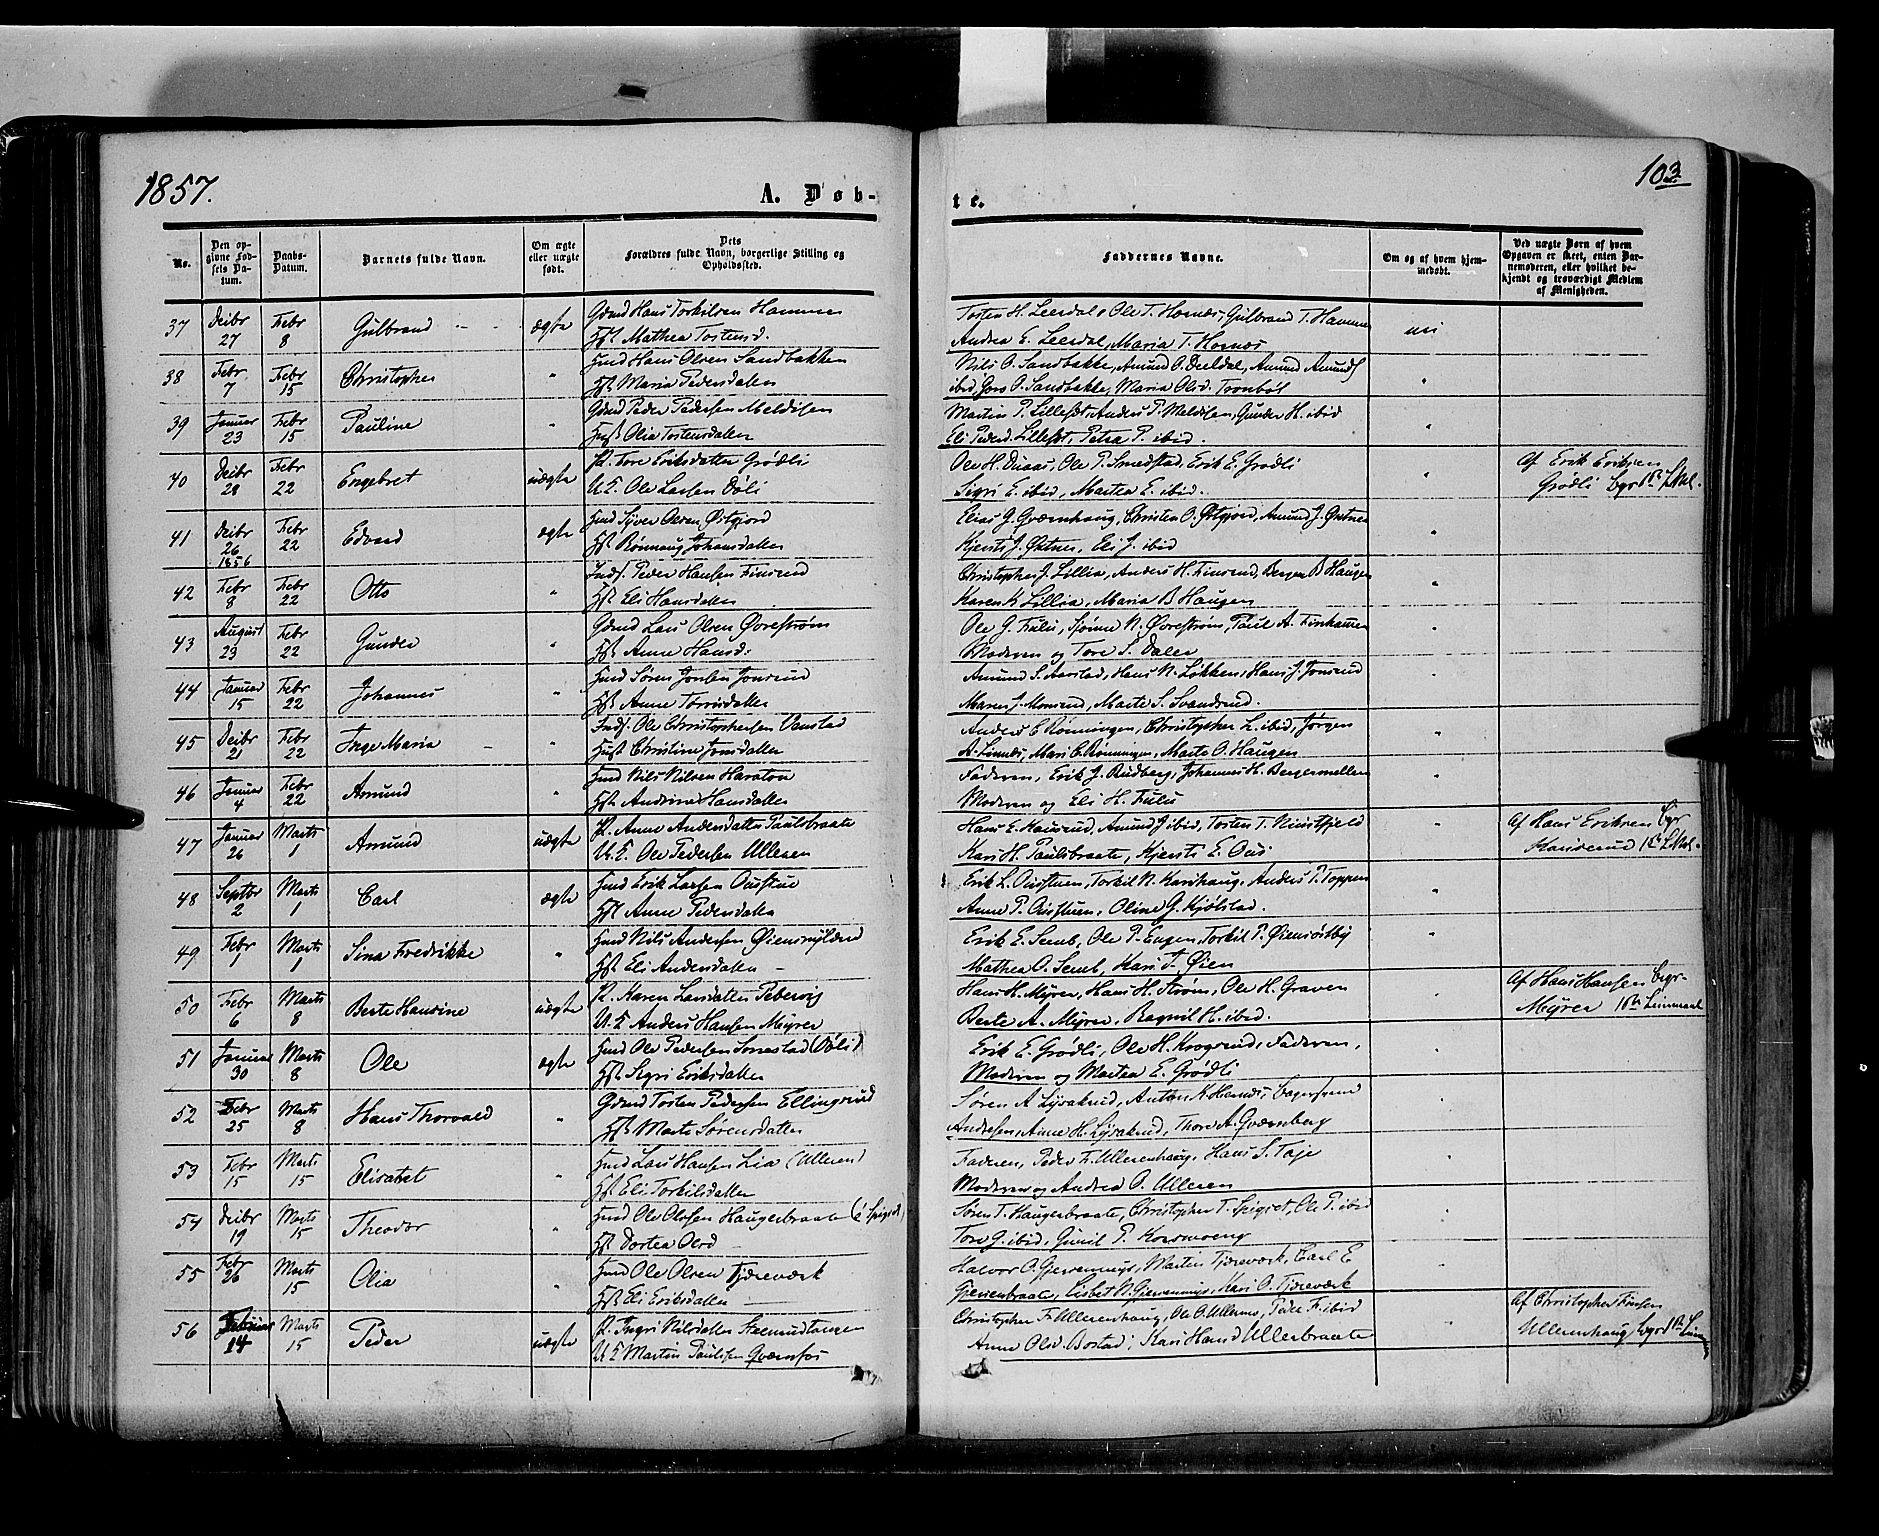 1857.
A. Døb-
te.
103
No.
Den op-
givne Fød-
sels Da-
tum.
Daabs-
Datum.
Barnets fulde Navn.
Om ægte
eller uægte
født.
Dets
Forældres fulde Navn, borgerlige Stilling og
Opholdssted.
Faddernes Navne.
Om og af hvem hjem-
medøbt.
Ved uægte Børn af hvem
Opgaven er skeet, enten Bar-
nemoderen, eller hvilket be-
kjendt og troværdigt Medlem
af Menigheden.
37 Deibr 27 Febr 8 Gulbrand ægte Gdmd Hans Torkilsen Hammer
Hst Mathea Tostensd.
Tosten H. Leerdal, Ole T. Hornæs, Gulbrand T. Hammer
Andrea E. Leerdal, Maria T. Hornæs
nei
38 Febr 7 Febr 15 Christopher " Hmd Hans Olsen Sandbakken
Hst Maria Pedersdatter
Nils O. Sandbakke, Amund O. Deeldal, Amund Amunds
ibid, Goro O. Sandbakke, Maria Olsd. Tornbøl
39 Januar 23 Febr 15 Pauline " Gdmd Peder Pedersen Meldisen
Hust Olia Tostensdatter
Martin P. Lillesæt, Anders P. Meldisen, Gunder H. ibid
Eli Pedersd. Lillesæt, Petra P. ibid.
40 Deibr 28 Febr 22 Engebret uægte P. Tore Eriksdatter Grødli
U.K. Ole Larsen Døli
Ole H. Duaas, Ole P. Smedstad, Erik E. Grødli
Sigri E. ibid, Martea E. ibid.
Af Erik Eriksen
Grødli
41 Deibr 26 1856 Febr 22 Edvard ægte Hmd Syver Olsen Østgjord
Hst Rønnaug Johansdatter
Elias G. Grærnhaug, Christen O. Østgjord, Amund J. Østnes
Kjersti J. Østnes, Eli J. ibid
42 Febr 8 Febr 22 Otto " Inds. Peder Hansen Finsrud
Hst Eli Hansdatter
Christopher J. Lillia, Anders H. Finsrud, Berger B Haugen
Karen K Lillia, Maria B Haugen
43 August 23 Febr 22 Gunder " Gdmd Lars Olsen Øvrestrøm
Hst Anne Hansd:
Ole G. Fulu, Sjønne N. Øvrestrøm, Paul A. Finhammer
Moderen og Tore S. Dalen
44 Januar 15 Febr 22 Johannes " Hmd Søren Jonsen Jonsrud
Hst Anne Torrisdatter
Amund S. Aarstad, Hans N. Løkken, Hans J. Jonsrud
Maren J. Monsrud, Marte S. Svandsrud.
45 Deibr 21 Febr 22 Inge Maria " Inds. Ole Christophersen Vamstad
Hust Christine Jonsdatter
Anders C Rønningen, Christopher L. ibid, Jørgen
A. Linnæs, Mari C. Rønningen, Marte O. Haugen
46 Januar 4 Febr 22 Amund " Hmd Nils Nilsen Haraton
Hst Andrine Hansdatter
Faderen, Erik J. Rudberg, Johannes H. Bergermellem
Moderen og Eli H. Fulu
47 Januar 26 Marts 1 Amund uægte P. Anne Andersdatter Paulsbraate
U.K. Ole Pedersen Ulleren
Hans E. Kausrud, Amund J ibid, Tosten T. Minstfjeld
Kari H. Paulsbraate, Kjersti E. Ous
Af Hans Eriksen
48 Septbr 2 Marts 1 Carl ægte Hmd Erik Larsen Oustuen
Hst Anne Pedersdatter
Erik L. Oustuen, Torkil N. Karihaug, Anders P. Toppen
Anne P. Oustuen, Oline G. Kjølstad.
49 Febr 1 Marts 1 Sina Fredrikke " Hmd Nils Andersen Øiensmylrud
Hst Eli Andersdatter
Erik E. Semb, Ole P. Engen, Torkil P. Øiensøstby
Mathea O. Semb, Kari T. Øien
50 Febr 6 Marts 8 Berte Hansine uægte P. Karen Larsdatter Pebervig
U.K. Anders Hansen Myrer
Hans H. Myrer, Hans H. Strøm, Ole H. Graven
Berte A. Myrer, Ragnil H. ibid.
Af Hans Hansen
Myrer
51 Januar 30 Marts 8 Ole ægte Hmd Ole Pedersen Sorrestad (Døli)
Hst Segri Eriksdatter
Erik E. Grødli, Ole H. Krogsrud, Faderen,
Moderen og Martea E. Grødli
52 Febr 25 Marts 8 Hans Thorvald " Gdmd Tosten Pedersen Ellingsrud
Hst Marte Sørensdatter
Søren A Lysakrud, Anton K Hernæs,
Andersen, Anne H. Lysakrud, Thore A. Qværnberg
53 Febr 15 Marts 15 Elisabet " Hmd Lars Hansen Lia (Ulleren)
Hst Eli Torkilsdatter
Faderen, Peder F. Ullerenhaug, Hans S. Taje
Moderen og Andrea O. Ulleren
54 Deibr 19 Marts 15 Theodor " Hmd Ole Olssen Haugerbraate (i Spigset)
Hst Dortea Olsd
Søren T. Haugerbraate, Christopher T. Spigset, Ole P. ibid
Tore G. ibid, Gunil P. Korsmoeng
55 Febr 26 Marts 15 Olia " Hmd Ole Olsen Tjæreværk
Hst Eli Eriksdatter
Halvor O. Gjerenmys, Martin Tjæreværk, Carl E
Gjerenbraate, Lisbet N. Gjerenmys, Kari O. Tjæreværk
56 14 Marts 15 Peder uægte P. Ingri Nilsdatter
U.K. Martin Paulsen Qværnfos
Christopher F. Ullerenhaug, Ole O. Ulleren, Peder F. ibid
Anne Olsd Bostad, Kari Hansd Ullerbraate
Af Christopher
Ullerenhaug